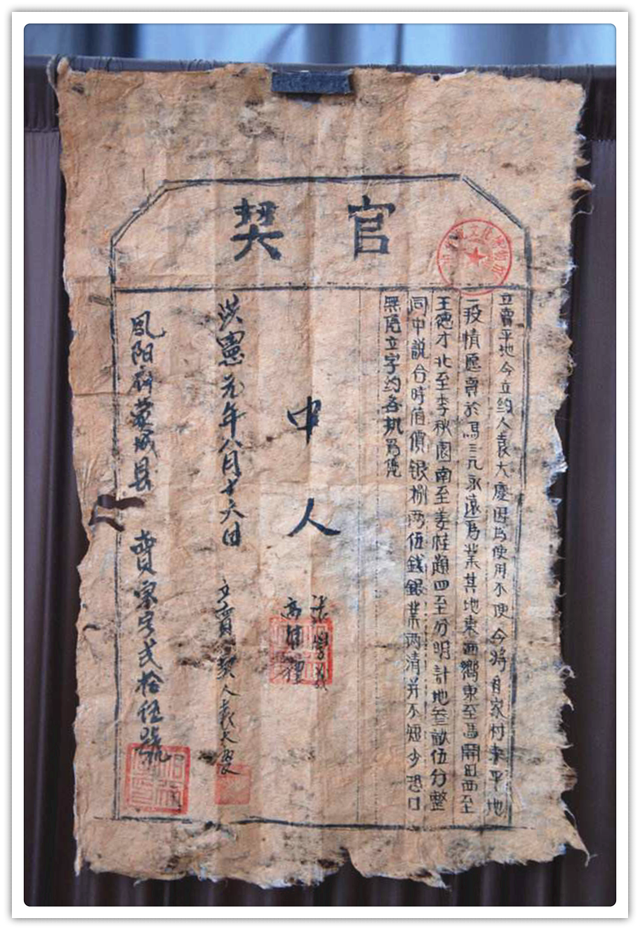 官契
立賣平地今立約人袁大慶因爲使用不便今將自家村東平地
一段情愿賣於馬三元永遠爲業其地東西鄉東至馬開田西至
王德才北至李秋園南至姜桂題四至分明計地叁畝伍分整
同中説合時值價銀捌兩伍錢銀業兩清并不短少恐口
無憑立字約各執爲憑
中人
洪憲元年八月十六日
立賣契人袁大慶
鳳阳府蒙城县 賣字第弍拾伍號